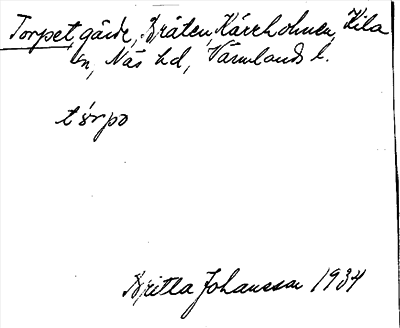 Torpet, gärde, Bråten, Kärrholmen, Kila
sn, Näs hd, Värmlands l.
tórpo
Britta Johansson 1934